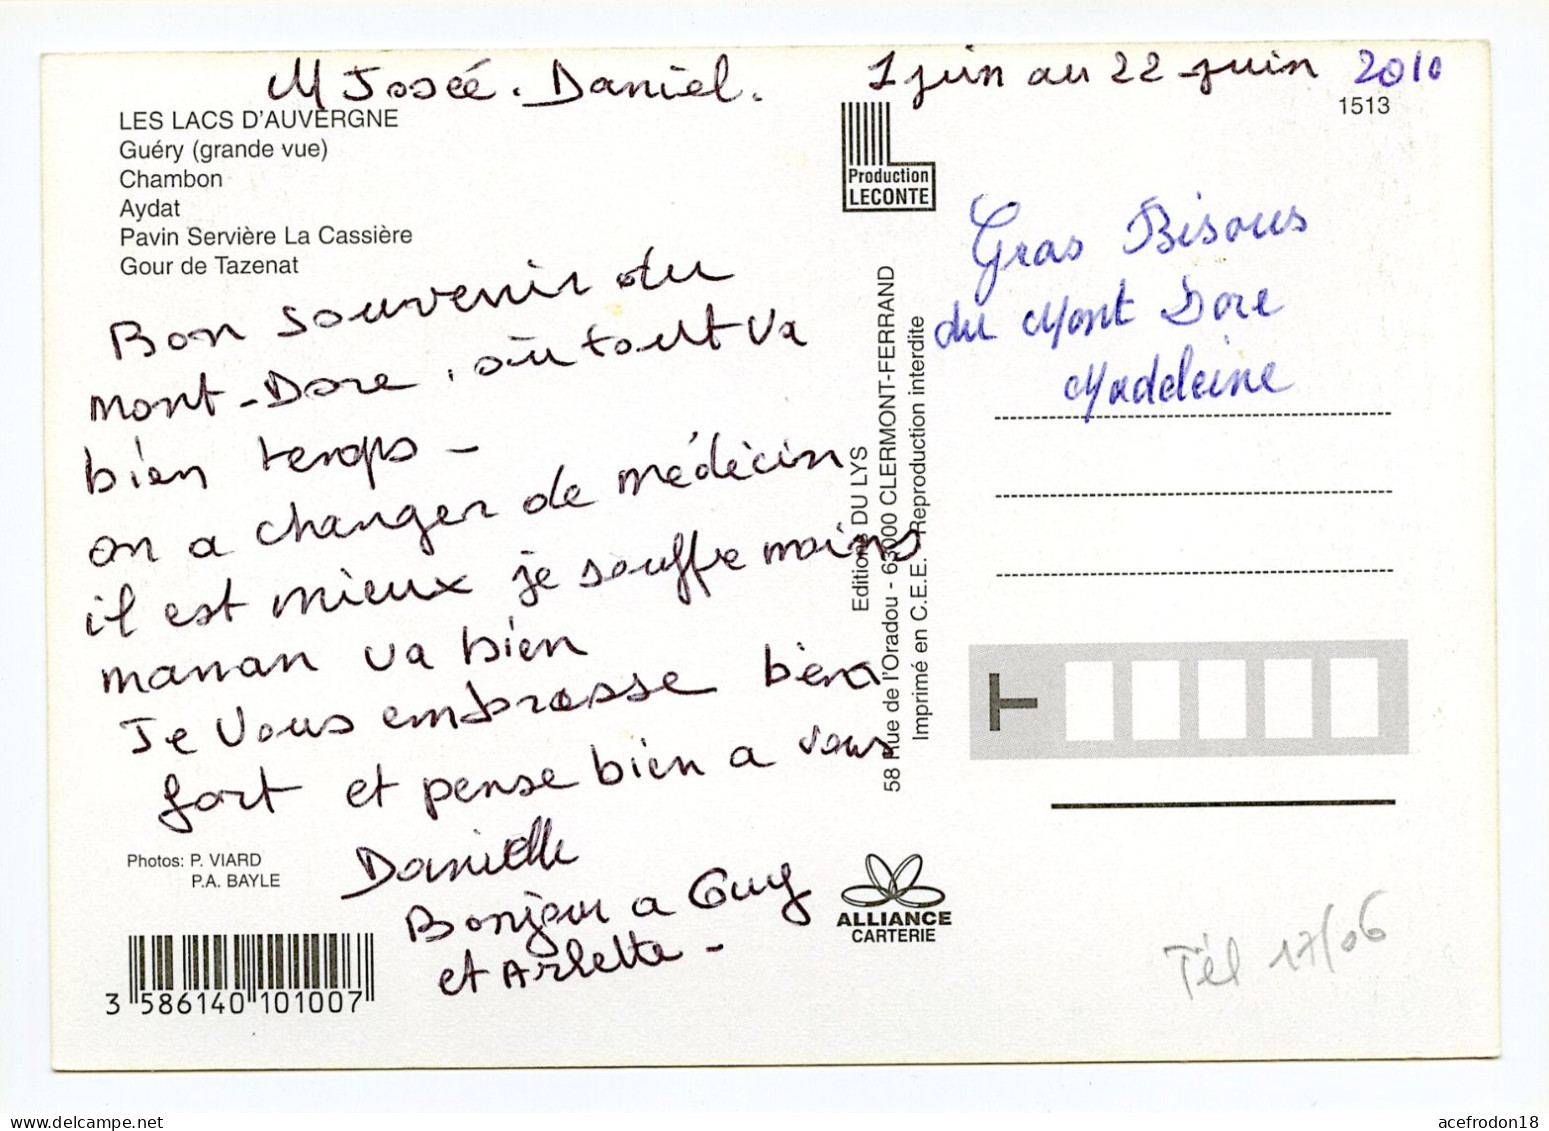 M Josée . Daniel .
1 juin au 22 juin 2010
1513
LES LACS D'AUVERGNE
Guéry (grande vue)
Chambon
Aydat
Pavin Servière La Cassière
Gour de Tazenat
Bon souvenir du
Mont-Dore, où tout va
bien temps -
on a changer de médecin
il est mieux je souffre moins
maman va bien
Je vous embrasse bien
fort et pense bien a vous
Danielle
Bonjour a Guy
et Arlette -
Photos: P. VIARD
P.A. BAYLE
3 586140 101007
Production
LECONTE
Editions DU LYS
58 Rue de l'Oradou - 63000 CLERMONT-FERRAND
Imprimé en C.E.E. Reproduction interdite
ALLIANCE
CARTERIE
Gras Bisous
du Mont Dore
Madeleine
T
Tél 17/06
delcampe.net
acefrodon18